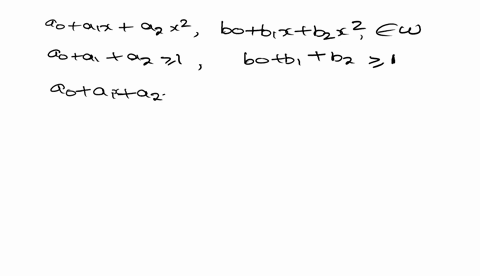 a₀+a₁x+a₂x², b₀+b₁x+b₂x², ∈ω
a₀+a₁+a₂≥1, b₀+b₁+b₂≥1
a₀+a₁x+a₂.